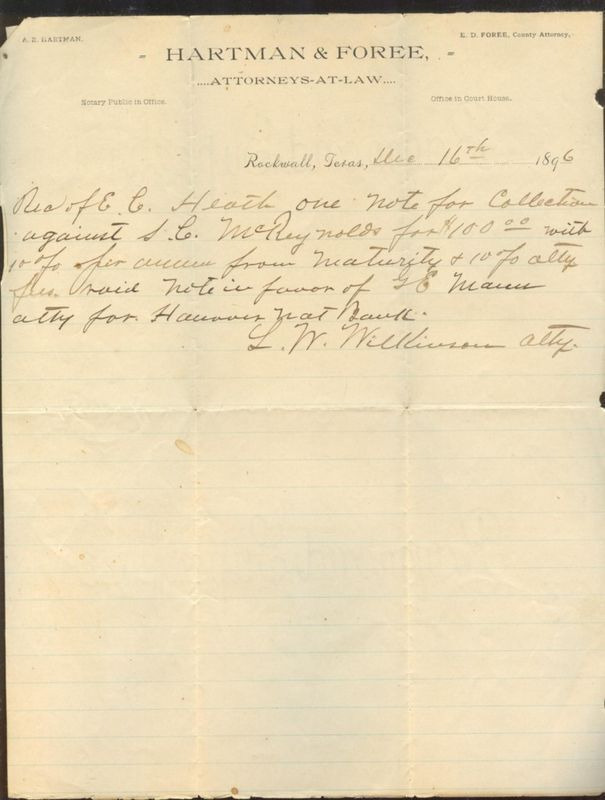 A. R. HARTMAN.
E. D. FOREE, County Attorney,
HARTMAN & FOREE,
....ATTORNEYS-AT-LAW....
Notary Public in Office.
Office in Court House.
Rockwall, Texas, Dec 16th 1896
Rec of E. C. Heath one note for Collection
against S. C. McReynolds for $100 00 with
10 % per annum from maturity & 10 % atty
fees said note in favor of G E Mann
atty for Hanover nat Bank.
L. W. Wilkinson atty.